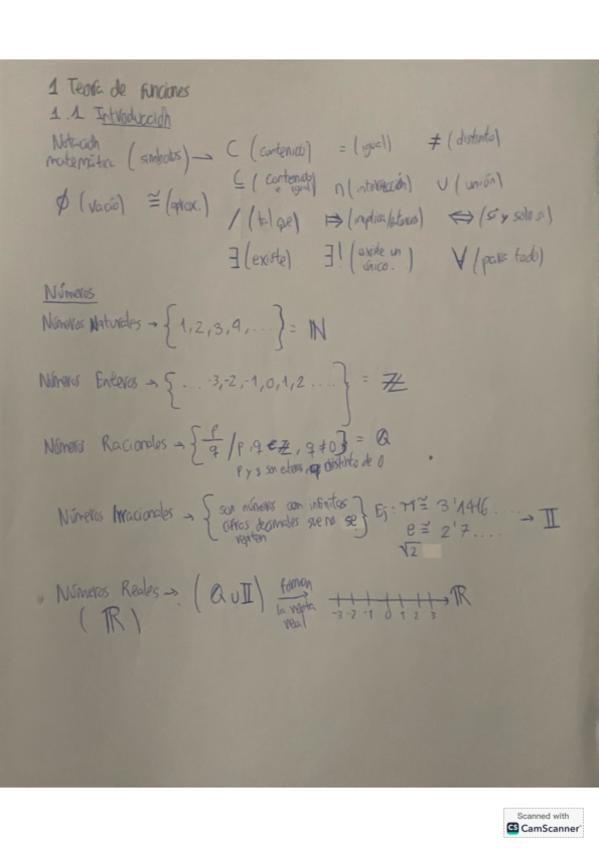 1 Teoría de funciones
1.1 Introducción
Notación matemática (símbolos) → ⊂ (contenido) = (igual) ≠ (distinto)
⊆ (contenido e igual) ∩ (intersección) ∪ (unión)
∅ (vacío) ≅ (aprox.)
/ (tal que) ⇒ (implica) ⇔ (si y solo si)
∃ (existe) ∃! (existe un único.) ∀ (para todo)
Números
Números Naturales → {1,2,3,4,...} = ℕ
Números Enteros → {... -3,-2,-1,0,1,2 ....} = ℤ
Números Racionales → {p/q / p,q ∈ ℤ, q ≠ 0} = ℚ
p y q son enteros, q distinto de 0
Números Irracionales → {son números con infinitas cifras decimales que no se repiten} Ej: π ≅ 3'1416.... → 𝕀
e ≅ 2'7....
√2
Números Reales → (ℚ ∪ 𝕀) forman la recta real → -3 -2 -1 0 1 2 3 ℝ
(ℝ)
Scanned with
CS CamScanner